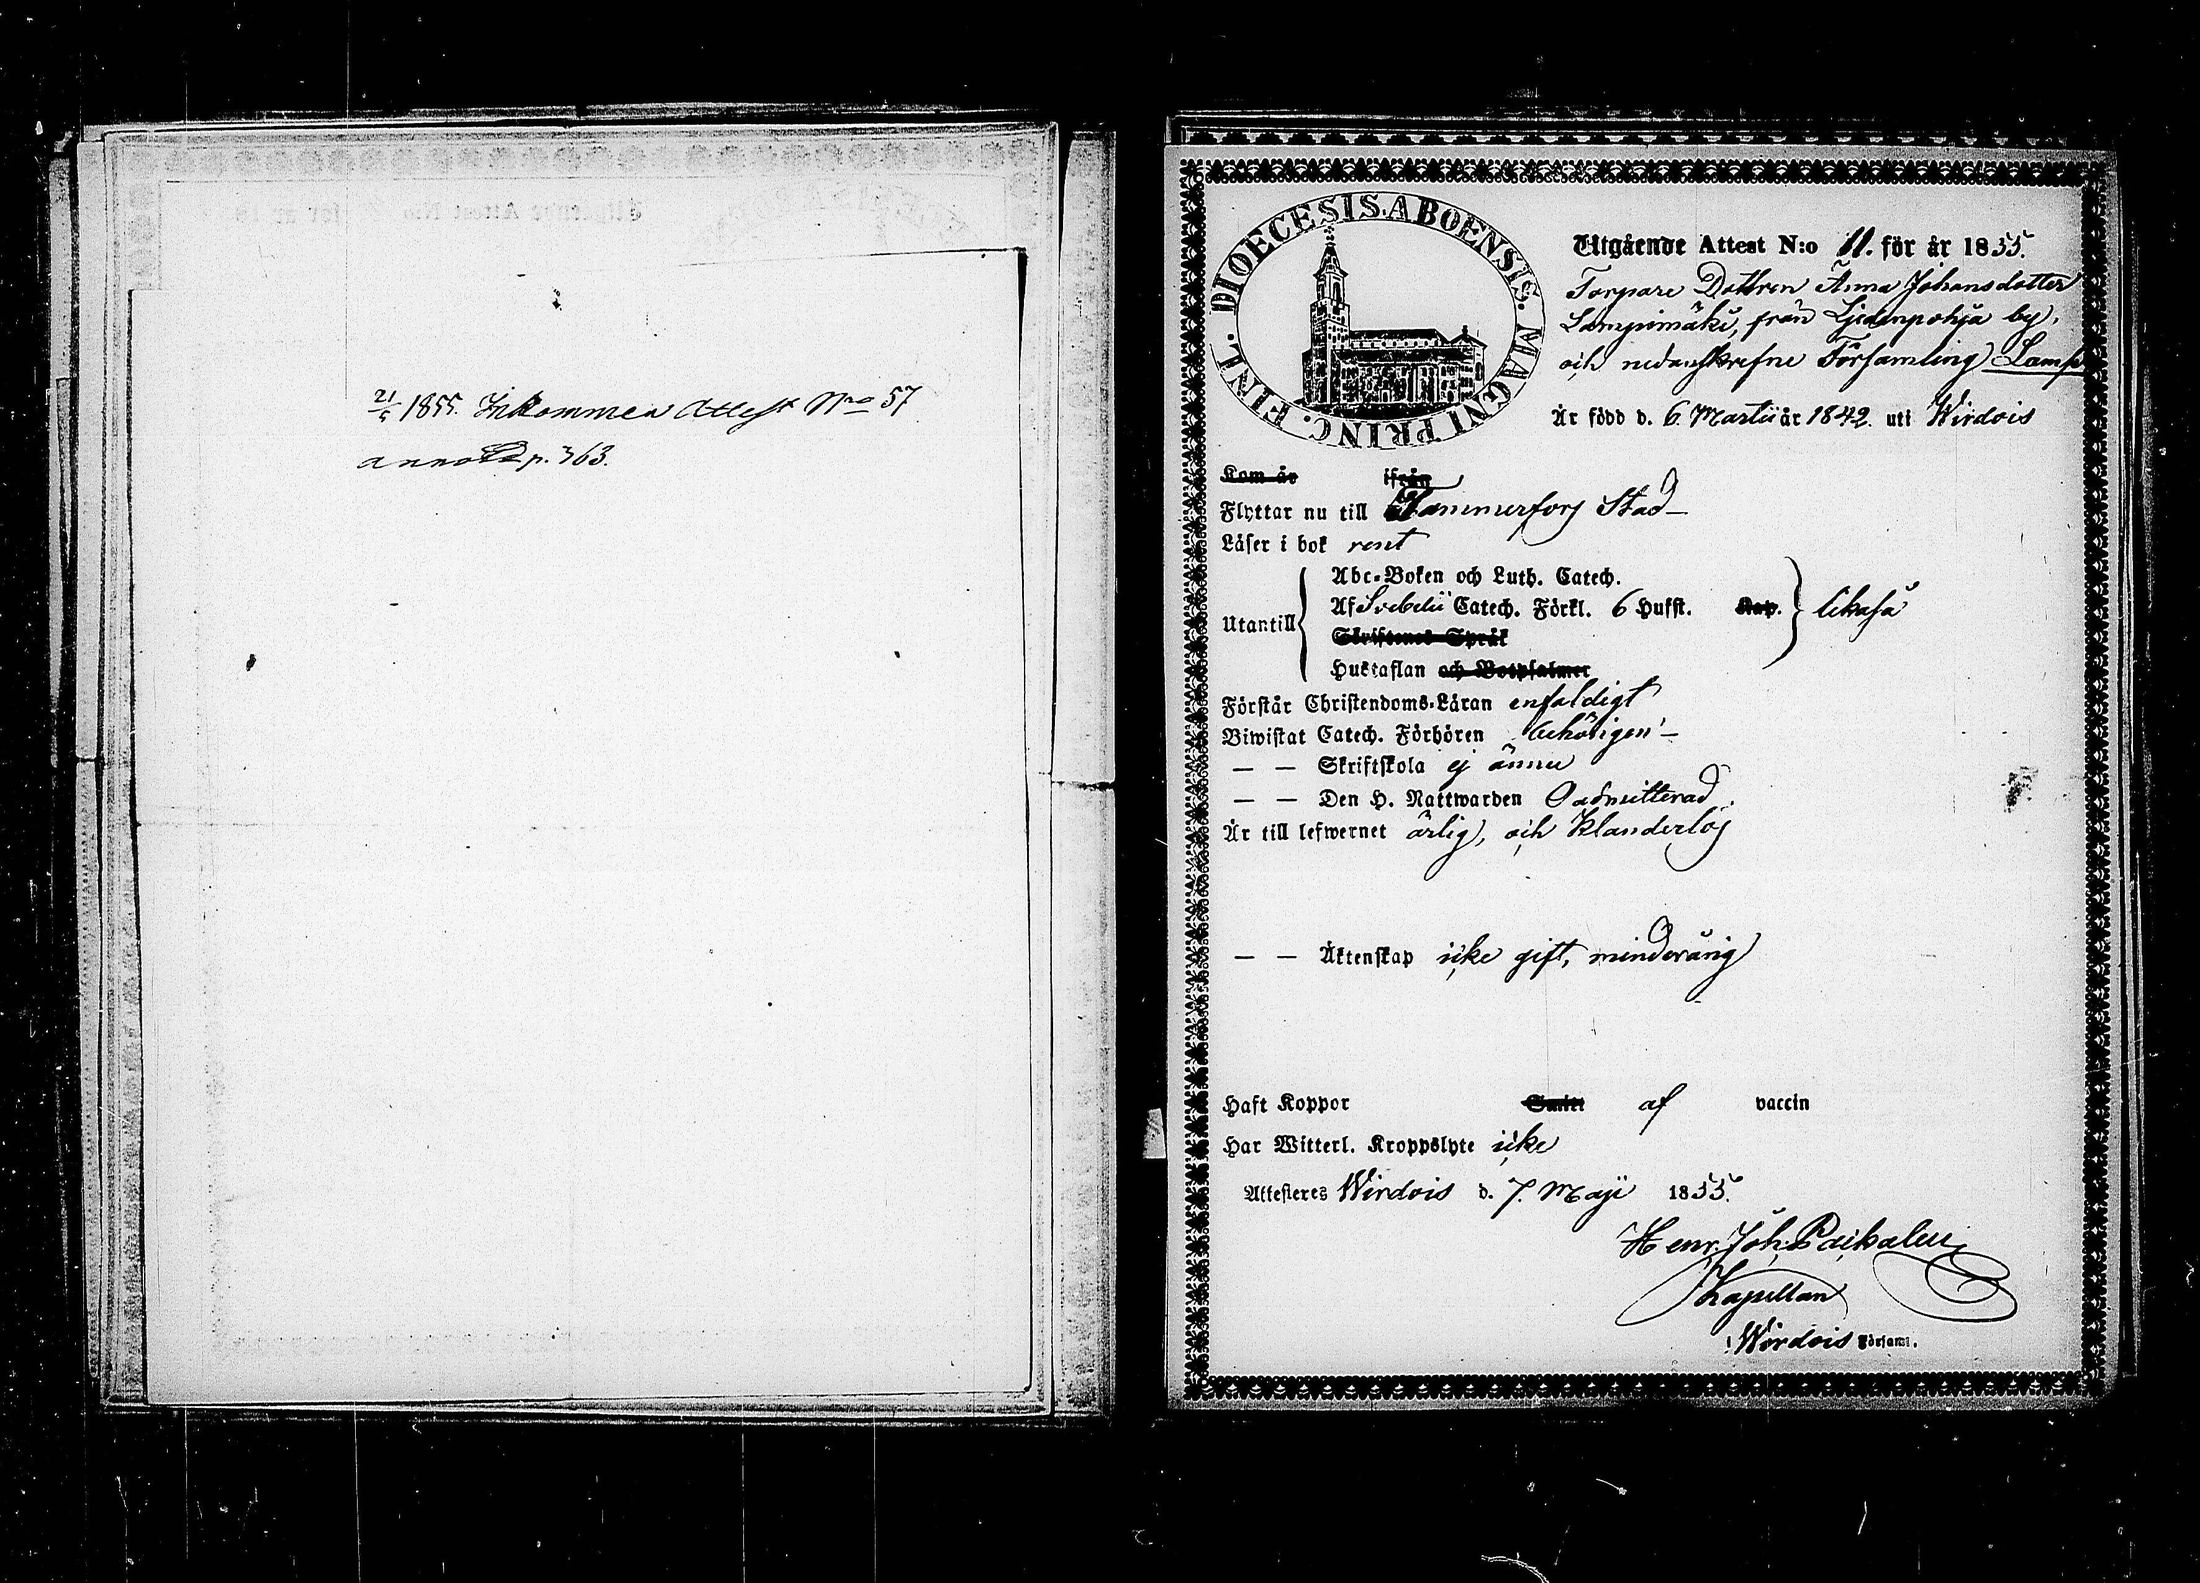 21/5 1855. Inkommen Attest Nro 57
annoterad p. 363.
DIOECESIS. ABOENSIS. MAGNI PRINC. FINL.
Utgående Attest N:o 11. för år 1855.
Torpare Dottren Anna Johansdotter
Lampimäki, från Ljedenpohja by,
och nedanskrefne Församling Lamp
Är född d. 6. Martii år 1842. uti Wirdois
Kom år ifrån
Flyttar nu till Tammerfors Stad
Läser i bok rent
Utantill
Abc-Boken och Luth. Catech.
Af Svebelii Catech. Förkl. 6 Hufst. Kap. likaså
Skriftenes Språk
Hustaflan och Botpsalmer
Förstår Christendoms-Läran enfaldigt
Biwistat Catech. Förhören behörigen
— — Skriftskola ej ännu
— — Den H. Nattwarden Oadmitterad.
Är till lefwernet ärlig, och klanderlös
— — Äktenskap icke gift, minderårig
Haft Koppor Smitt af vaccin
Har Witterl. Kroppslyte icke
Attesteres Wirdois d. 7. Maji 1855.
Henr. Joh.
Kapellan
i Wirdois Församl.